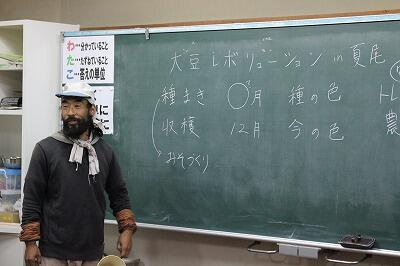 わ…分かっていること
た…たずねていること
こ…答えの単位
大豆レボリューション in 夏尾
種まき ○月 種の色 トレ
収穫 12月 今の色 農
みそづくり